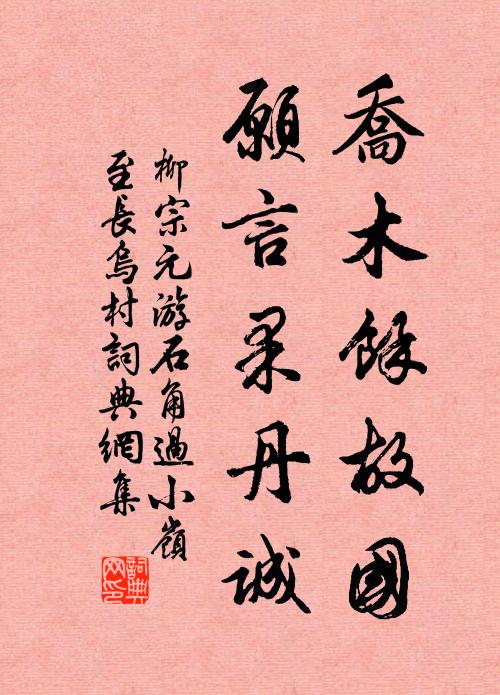 喬木餘故國
願言果丹誠
柳宗元游石角過小嶺
至長烏村詞典網集
詞典
网印